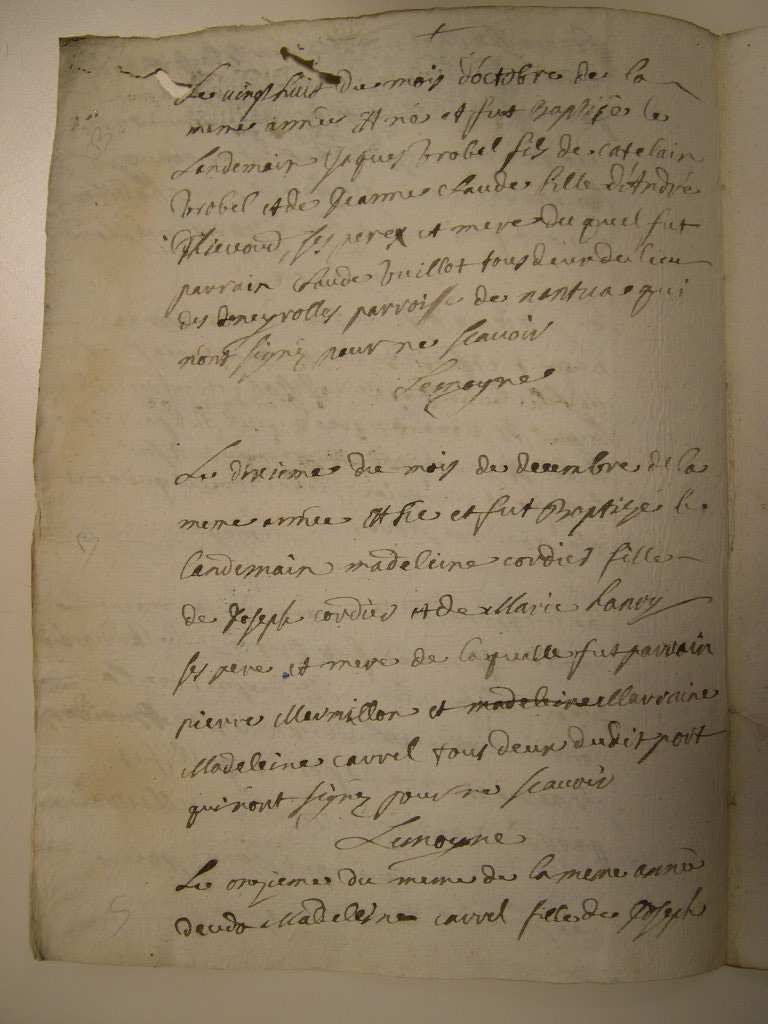 Le vingt huit du mois d'octobre de la
meme année est né et fut Baptisé le
landemain Jaques Brobel fils de Catelain
Brobel et de Jeanne Claude fille d'André
ses peres et mere du quel fut
parrain Claude Vuillot tous deux du lieu
des Neyrolles parroisse de nantua qui
n'ont signéz pour ne scavoir
Lemoyne
Le dixieme du mois de decembre de la
meme année est née et fut Baptisée le
landemain madeleine cordier fille
de Joseph cordier et de Marie
ses pere et mere de laquelle fut parrain
pierre Mermillon et madeleine Marraine
Madeleine carrel tous deux dudit port
qui n'ont signéz pour ne scavoir
Lemoyne
Le onzieme du meme de la meme année
Madeleine carrel fille de Joseph